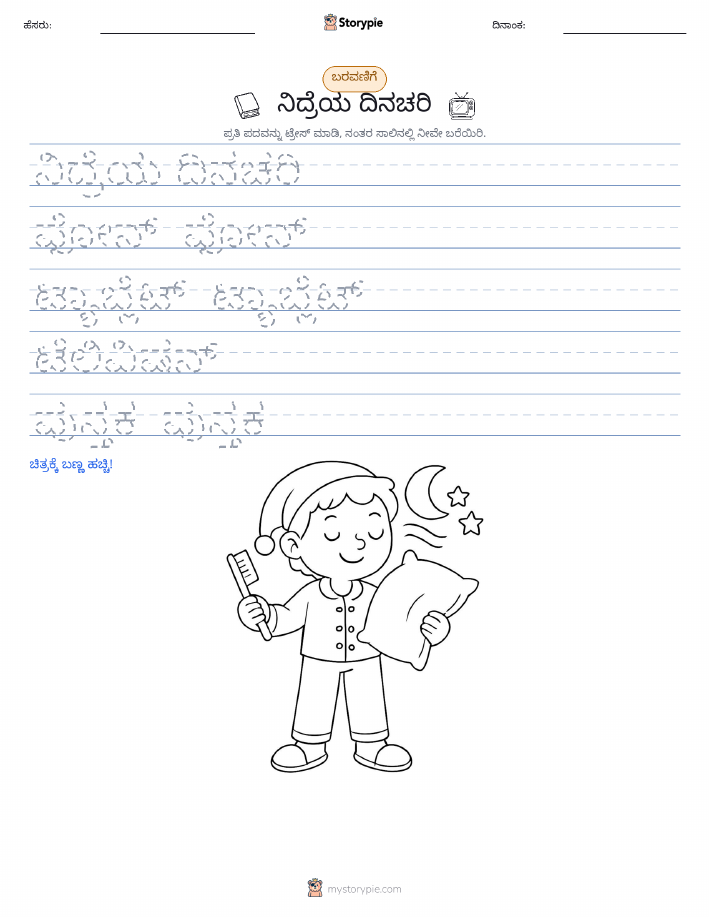 ಹೆಸರು:
Storypie
ದಿನಾಂಕ:
ಬರವಣಿಗೆ
ನಿದ್ರೆಯ ದಿನಚರಿ
ಪ್ರತಿ ಪದವನ್ನು ಟ್ರೇಸ್ ಮಾಡಿ, ನಂತರ ಸಾಲಿನಲ್ಲಿ ನೀವೇ ಬರೆಯಿರಿ.
ನಿದ್ರೆಯ ದಿನಚರಿ
ಫೋನ್ ಫೋನ್
ಟ್ಯಾಬ್ಲೆಟ್ ಟ್ಯಾಬ್ಲೆಟ್
ಟೆಲಿವಿಷನ್
ಪುಸ್ತಕ ಪುಸ್ತಕ
ಚಿತ್ರಕ್ಕೆ ಬಣ್ಣ ಹಚ್ಚಿ!
mystorypie.com